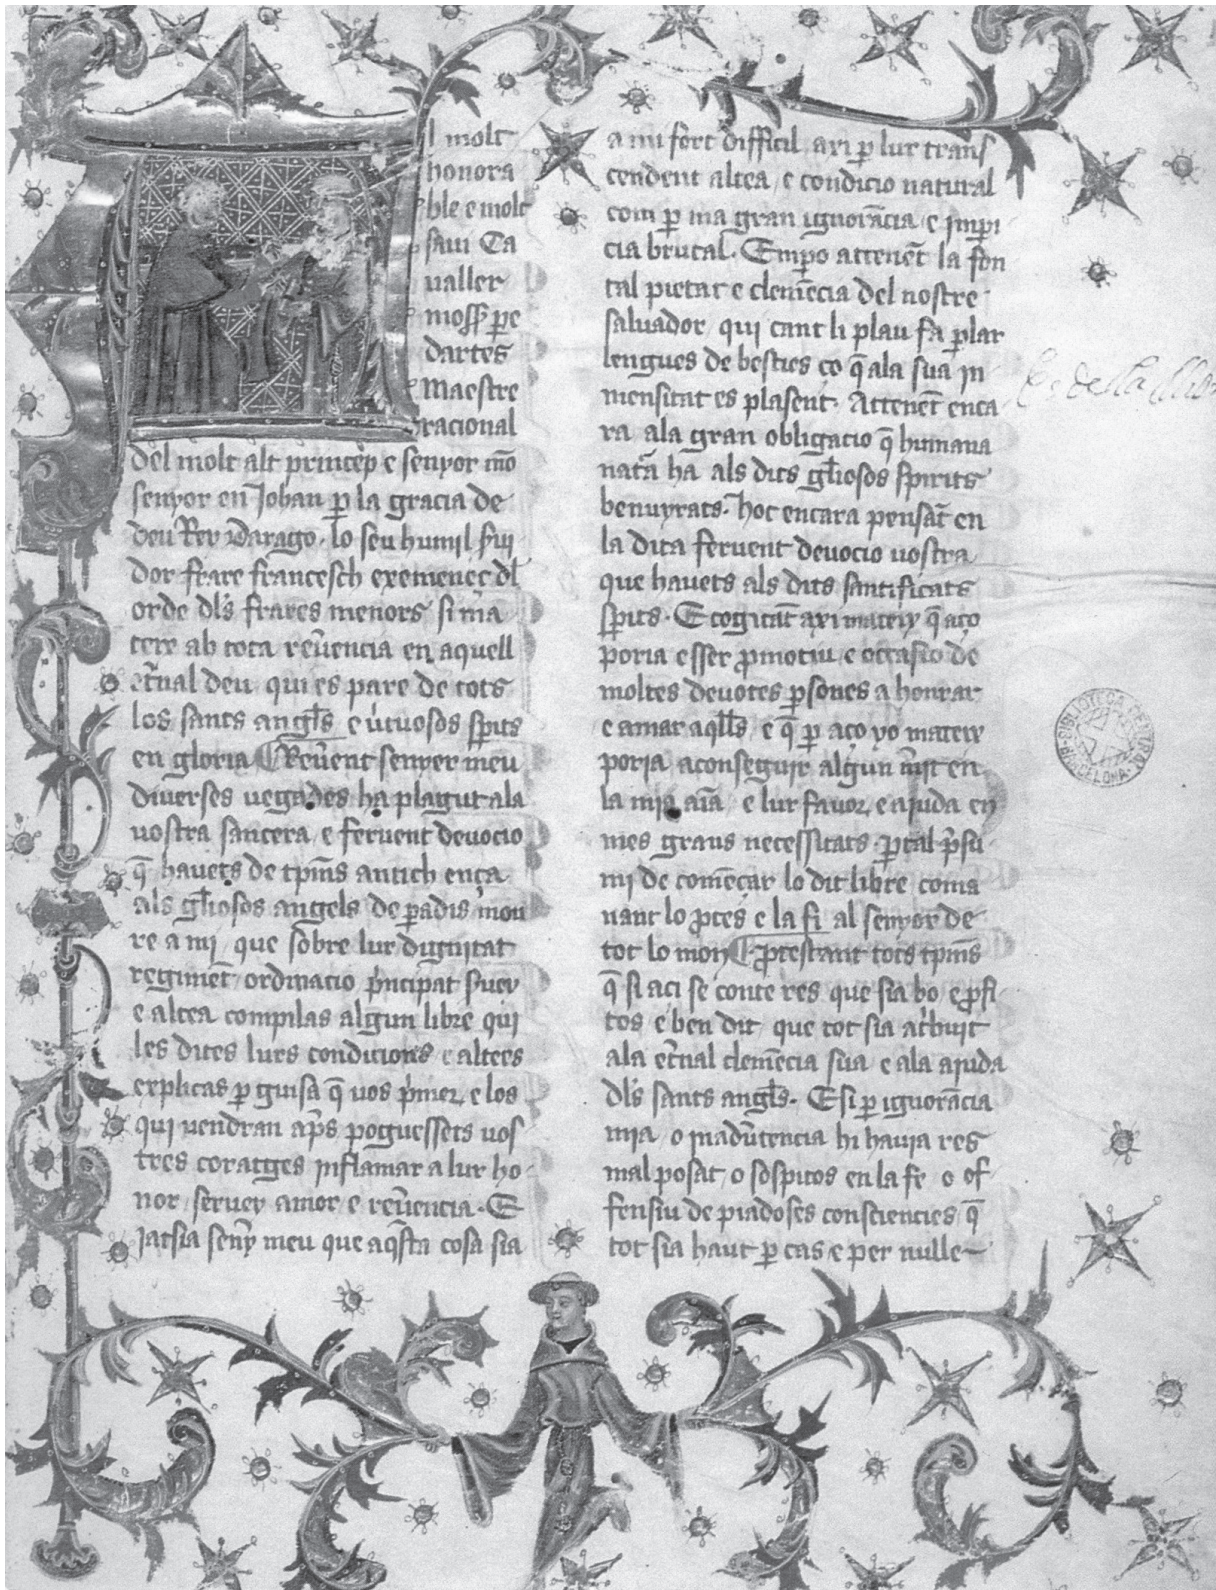 l molt
honora
ble e molt
saui Ca
ualler
moss̃ pe
dartes
Maestre
racional
del molt alt princep e senyor mõ
senyor en Johan p̱ la gracia de
deu Rey Darago · lo seu humil s̃ui
dor frare francesch exemeneç dl̃
orde dl̃s frares menors si ma
teix ab tota reu̾encia en aquell
et̾nal deu qui es pare de tots
los sants angl̃s e u̾tuosos sp̃its
en gloria ¶ Reu̾ent senyer meu
diverses uegades ha plagut ala
uostra sancera e feruent deuocio
q̃ hauets de tp̃ms antich ença
als gl̃iosos angels de p̱adis mou
re a mi que sobre lur dignitat
regimẽt ordinacio p̾ncipat s̾uey
e altea compilas algun libre qui
les dites lurs condicions e altees
explicas p̱ guisa q̃ uos p̾mer e los
qui uendran ap̃s poguessets uos
tres coratges inflamar a lur ho
nor seruey amor e reu̾encia · E
Jatsia seny̾ meu que aq̃sta cosa sia
a mi fort difficil axi p̱ lur trans
cendent altea e condicio natural
com p̱ ma gran ignorãcia e imp̱i
cia brutal · Emp̱o attenẽt la fon
tal pietat e clemẽcia del nostre
saluador qui cant li plau fa p̱lar
lengues de besties ço q̃ ala sua in
mensitat es plasent · Attenẽt enca
ra ala gran obligacio q̃ humana
natã ha als dits gl̃iosos spirits
benuyrats · hoc encara pensãt en
la dita feruent deuocio uostra
que hauets als dits santificats
sp̃its · E cogitãt axi mateix q̃ aço
poria esser p̱motiu e occasio de
moltes deuotes p̱sones a honrar
e amar aq̃lls e q̃ p̱ aço yo mateix
poria aconseguir algun m̾it en
la mia aĩa e lur fauor e aiuda en
mes grans necessitats · p̱tal p̾su
mi de comẽcar lo dit libre coma
nant lo p̱ces e la fi al senyor de
tot lo mon ¶ p̱testant tots tp̃ms
q̃ si aci se conte res que sia bo e p̱fi
tos e ben dit que tot sia at̾buit
ala et̾nal clemẽcia sua e ala aiuda
dl̃s sants angl̃s · E si p̱ ignorãcia
mia o inadũtencia hi hauia res
mal posat o sospitos en la fe o of
fensiu de piadoses consciencies q̃
tot sia haut p̱ cas e per nulle
BIBLIOTECA CENTRAL · BARCELONA